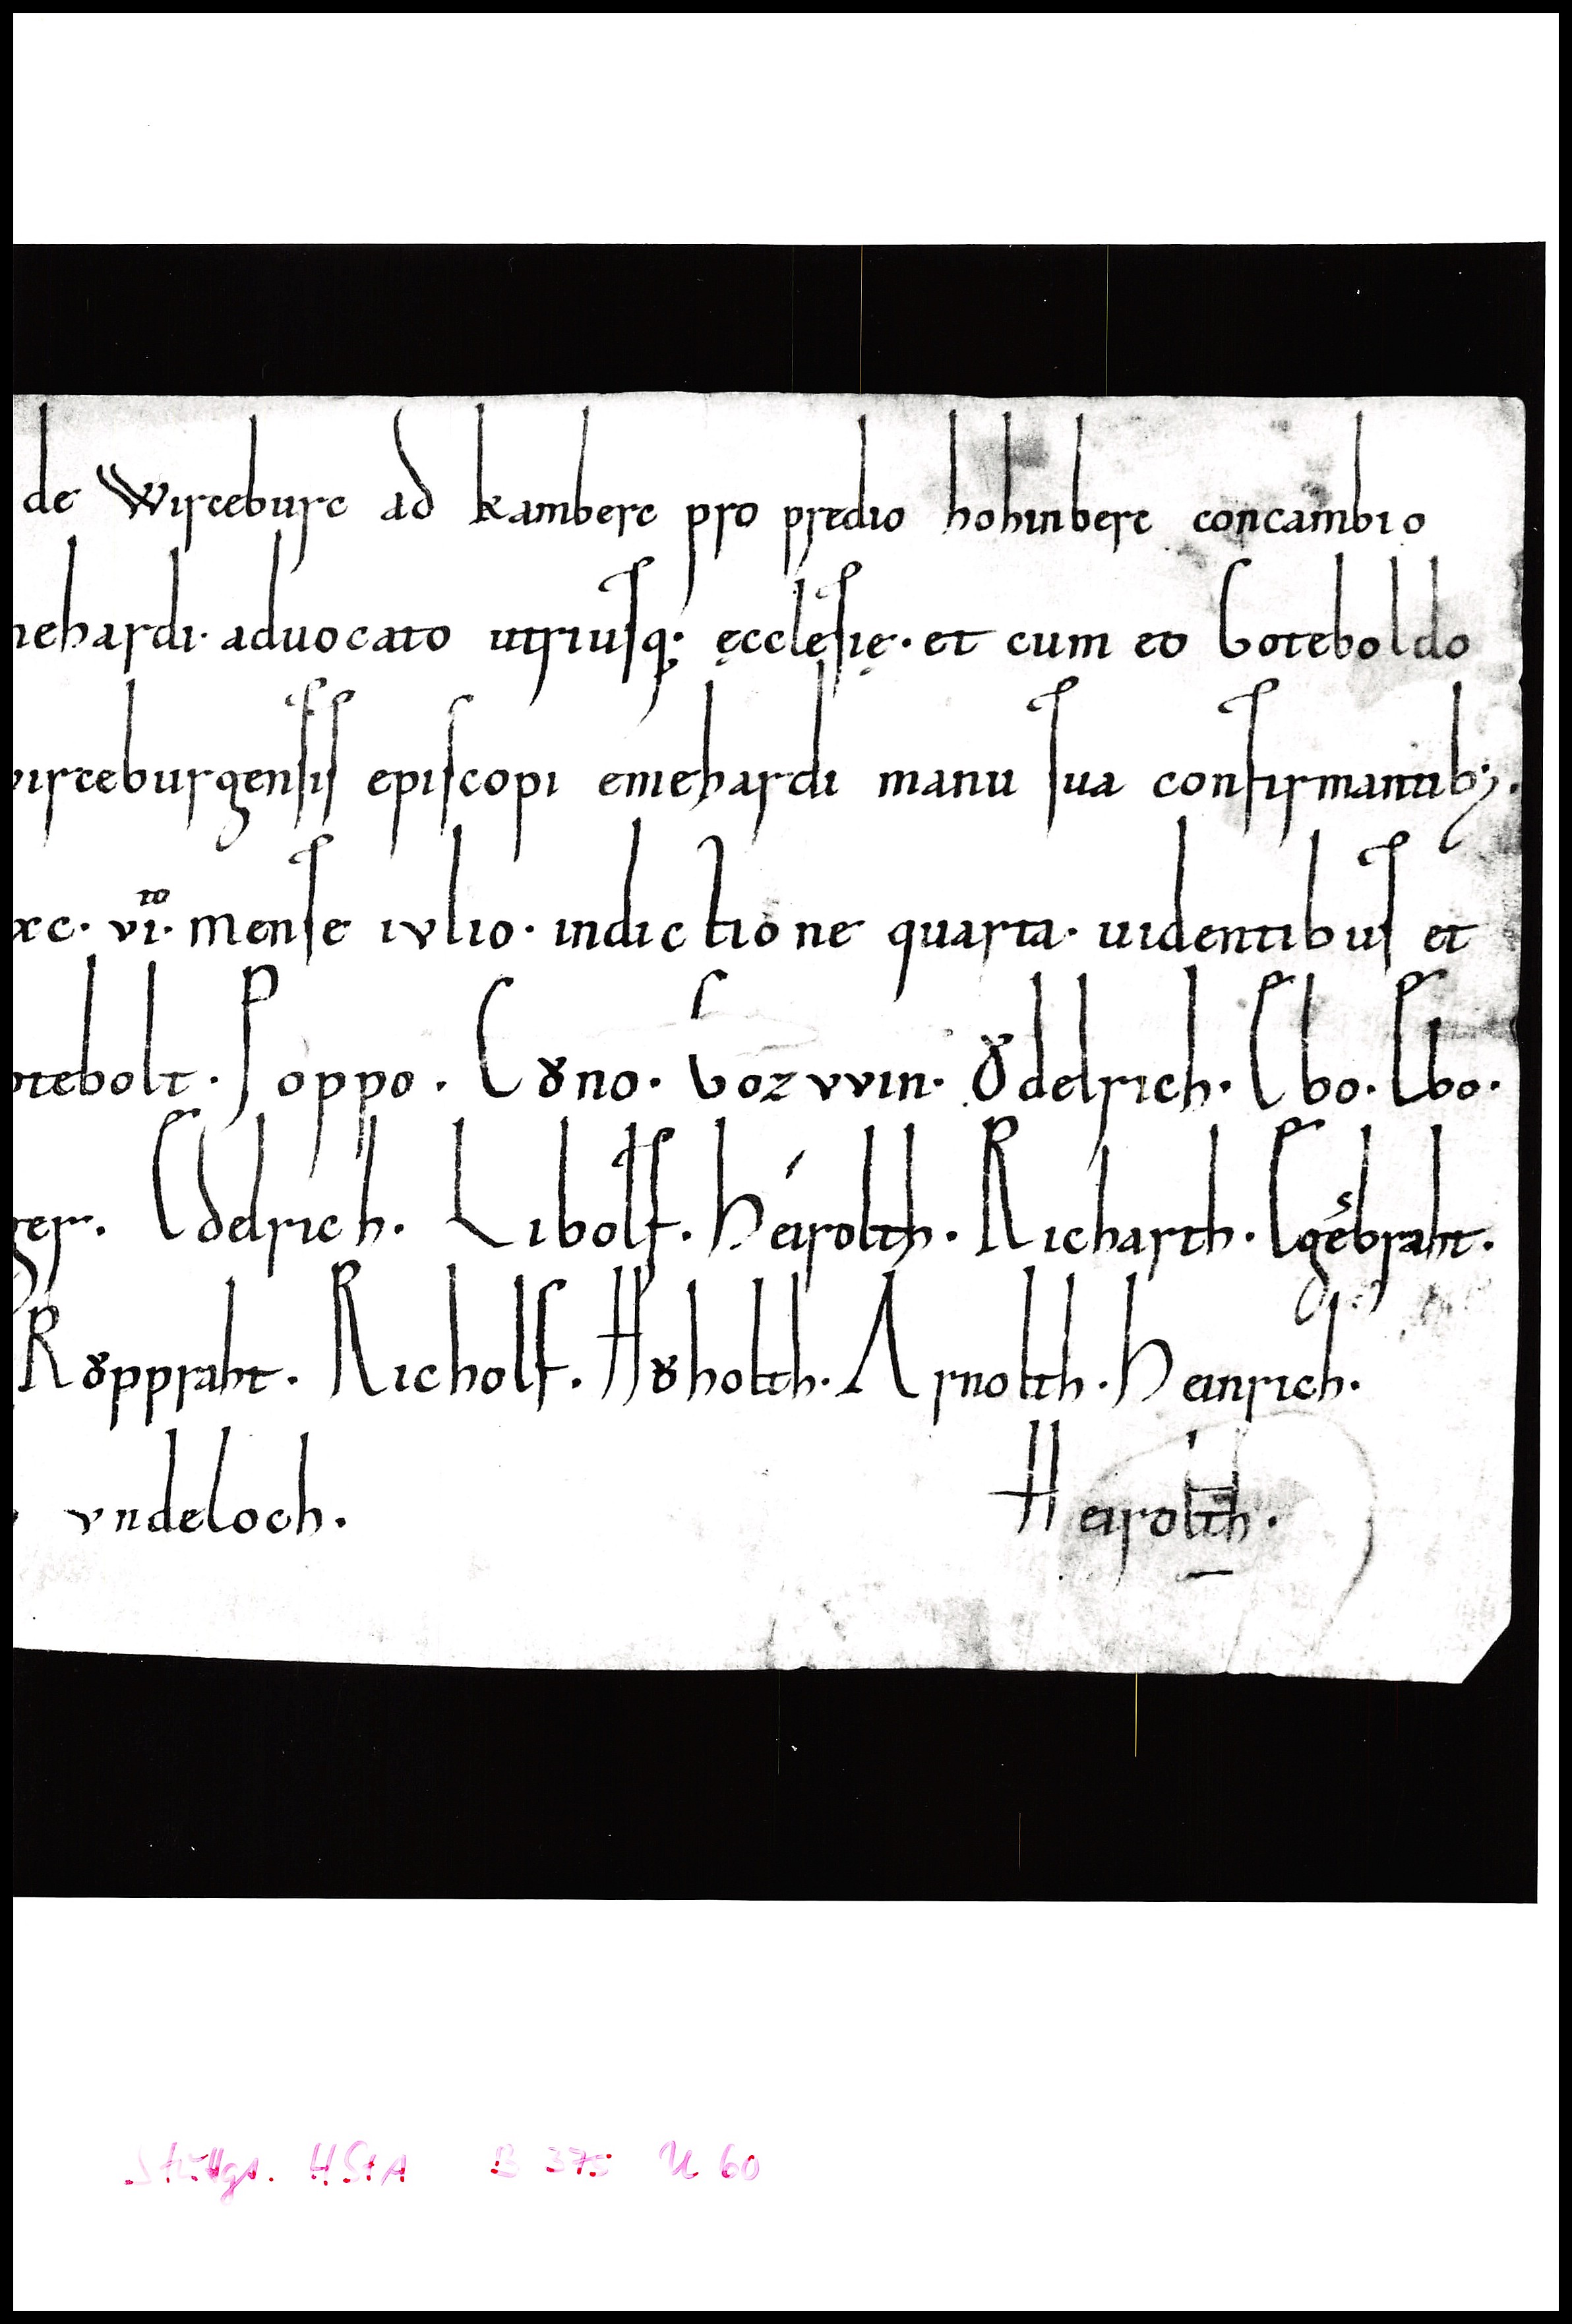 de Wirceburc ad kamberc pro predio hohinberc concambio
ehardi· aduocato utriusq;· ęcclesię· et cum eo Goteboldo
irceburgensis episcopi emehardi manu sua confirmantib;·
xc· vi^to· mense iulio· indictione quarta· uidentibus et
tebolt· Poppo· Cꝏno· Gozvvin· Ȣdelrich· Ebo· Ebo·
er· Edelrich· Libolf· Héirolth· Richarth· Egesbraht·
Rȣppraht· Richolf· Hȣholth· Arnolth· Heinrich·
vndeloch· Heirolth·
Stuttg. HStA B 375 U 60